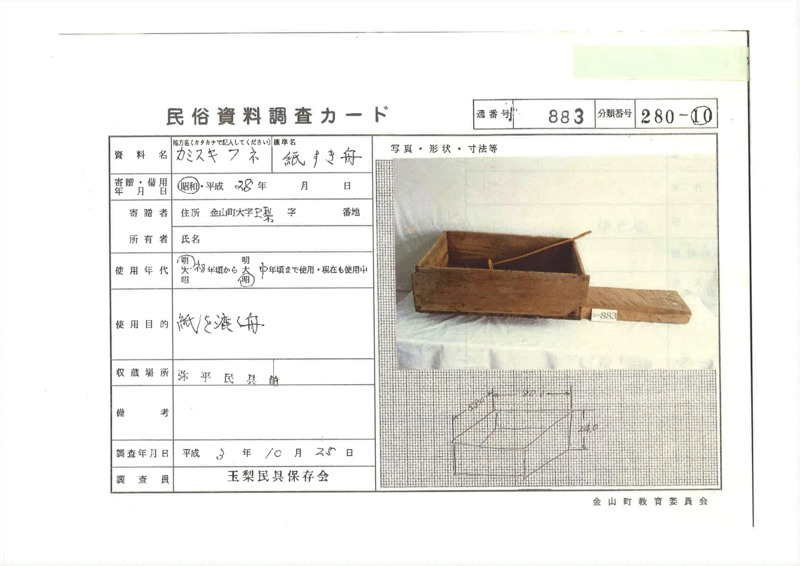 民俗資料調査カード
通番号 883 分類番号 280-10
資料名 地方名(カタカナで記入してください) カミスキフネ 標準名 紙すき舟
寄贈・借用年月日 昭和・平成 28年 月 日
寄贈者 住所 金山町大字玉梨 字 番地
所有者 氏名
使用年代 明大昭 初年頃から 明大昭 中年頃まで使用・現在も使用中
使用目的 紙を漉く舟
収蔵場所 弥平民具館
備考
調査年月日 平成 3年 10月 28日
調査員 玉梨民具保存会
写真・形状・寸法等
883
90.0
24.0
金山町教育委員会